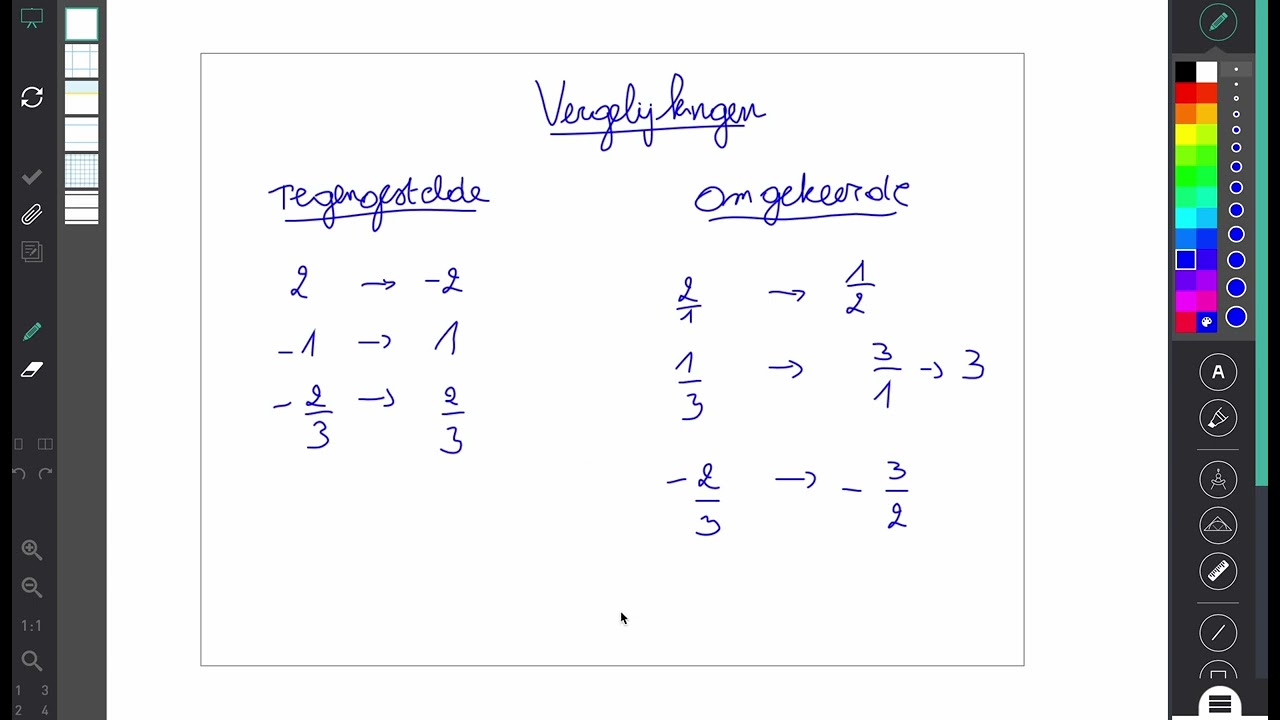 Vergelijkingen
Tegengestelde
2 → -2
-1 → 1
-2/3 → 2/3
Omgekeerde
2/1 → 1/2
1/3 → 3/1 → 3
-2/3 → -3/2
A
1:1
1 3
2 4